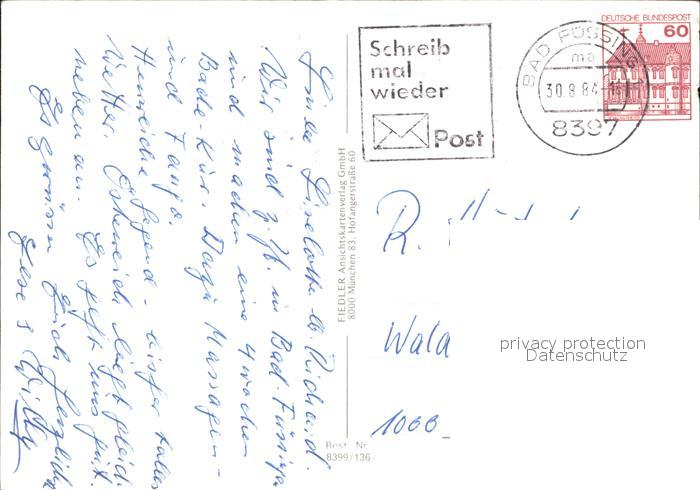 Liebe Liselotte u. Richard.
Wir sind z. Zt. in Bad-Füssing
und machen eine 4 wochen
Bade-Kur. Dazu Massagen-
und Fango.
Herrliche Gegend - bisher tolles
Wetter. Österreich liegt gleich
neben an. Es geht uns gut.
Es grüssen Euch herzlich
& Willy
FIEDLER Ansichtskartenverlag GmbH
8000 München 83, Hofangerstraße 60
Best. Nr.
8399/136
Schreib
mal
wieder
Post
BAD FÜSSING
ma
30.8.84
8397
DEUTSCHE BUNDESPOST
60
R.
Wala
1000
privacy protection
Datenschutz